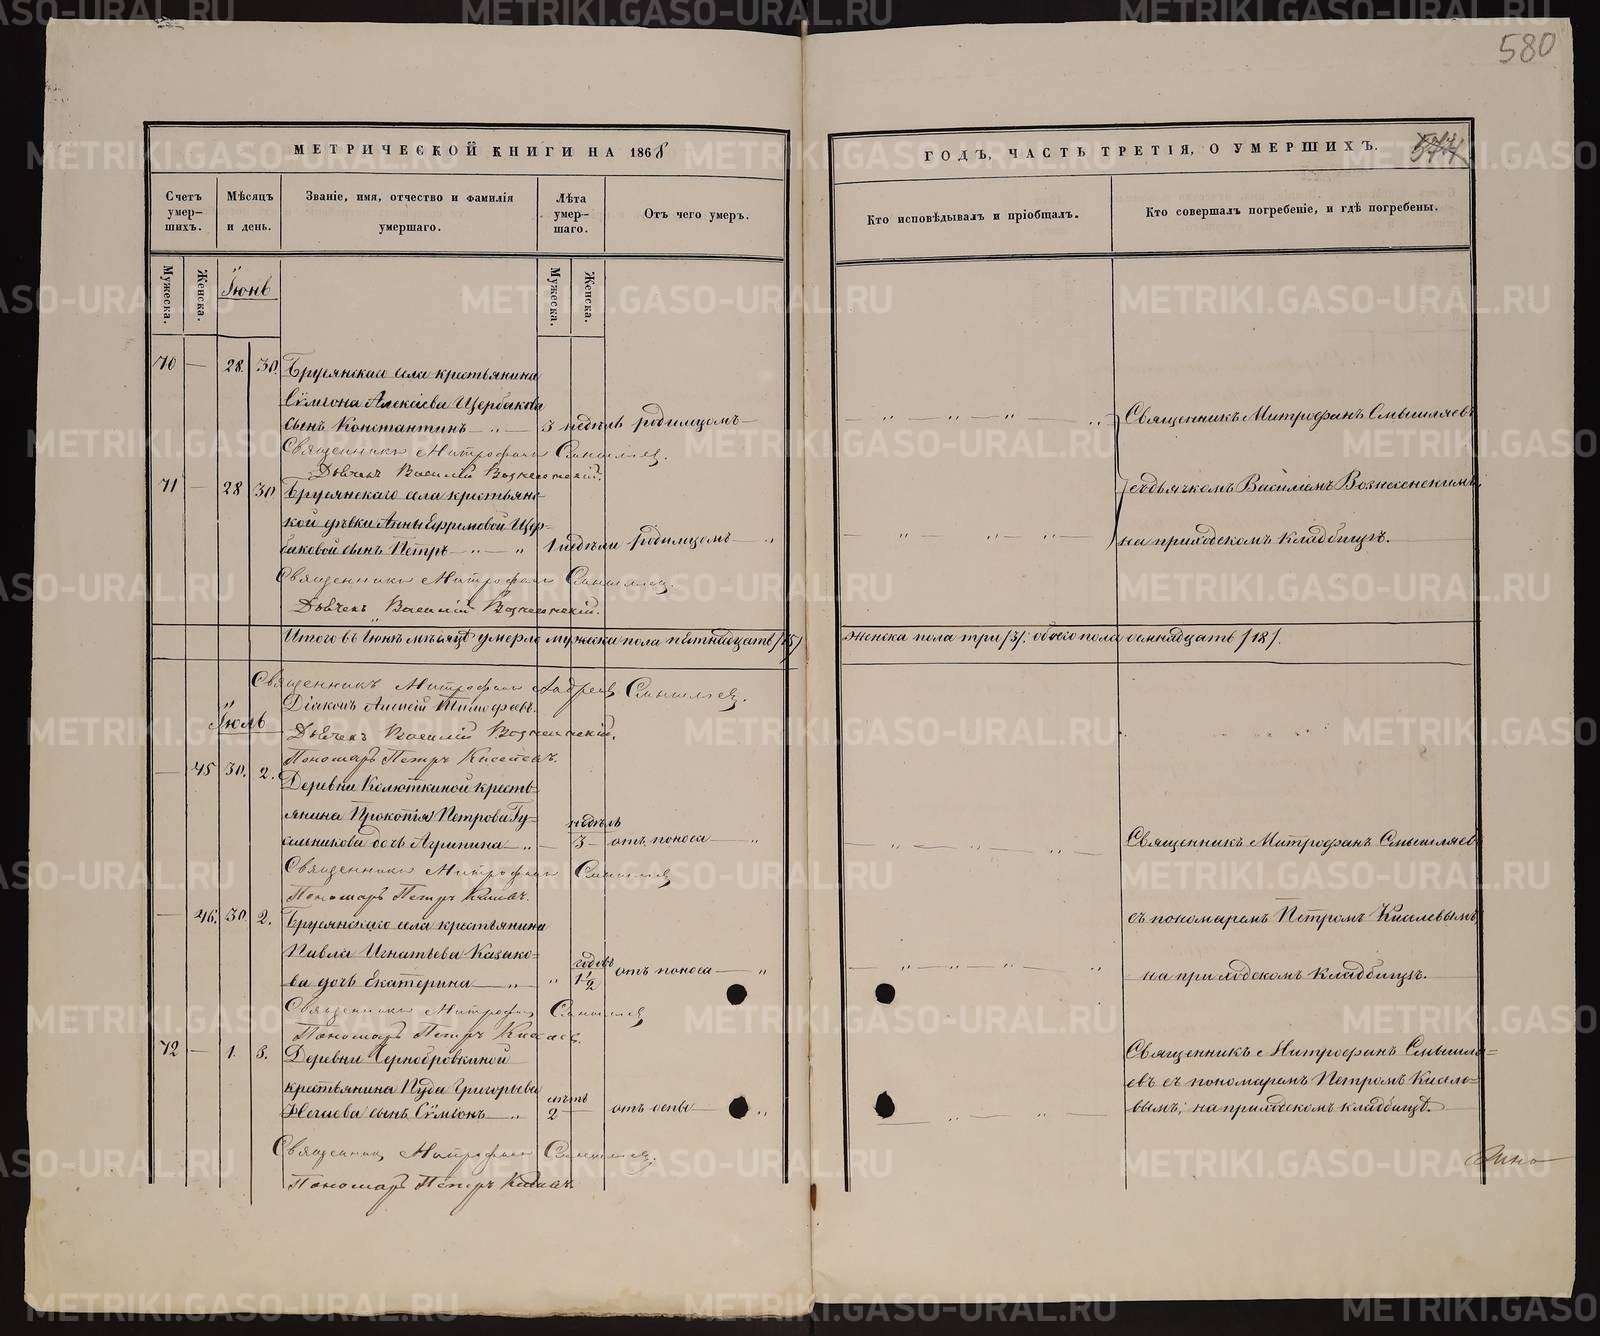 580
МЕТРИЧЕСКОЙ КНИГИ НА 1868
ГОДЪ, ЧАСТЬ ТРЕТІЯ, О УМЕРШИХЪ.
577
Счетъ умер-шихъ.
Мѣсяцъ и день.
Званіе, имя, отчество и фамилія умершаго.
Лѣта умер-шаго.
Отъ чего умеръ.
Кто исповѣдывалъ и пріобщалъ.
Кто совершалъ погребеніе, и гдѣ погребены.
Мужеска.
Женска.
Іюнь
Мужеска.
Женска.
70 — 28. 30. Брусянскаго села крестьянина
Сѵмеона Алексѣева Щербакова
сынъ Константинъ — 3 недѣль родимцомъ —
Священникъ Митрофанъ Смышляевъ
Священникъ Митрофанъ Смышляевъ.
Дьячекъ Василій Вознесенскій.
71 — 28 30 Брусянскаго села крестьянс-
съ дьячкомъ Василіемъ Вознесенскимъ,
кой дѣвки Анны Ефремовой Щер-
баковой сынъ Петръ — 1 недѣли родимцомъ —
на приходскомъ кладбищѣ.
Священникъ Митрофанъ Смышляевъ.
Дьячекъ Василій Вознесенскій.
Итого въ Іюнѣ мѣсяцѣ умерло мужеска пола пятнадцать /15/
женска пола три /3/, обоего пола осмнадцать /18/.
Священникъ Митрофанъ Андреевъ Смышляевъ.
Діаконъ Алексій Тимофеевъ.
Іюль
Дьячекъ Василій Вознесенскій.
Пономарь Петръ Киселевъ.
— 45 30. 2. Деревни Колюткиной кресть-
янина Прокопія Петрова Гу-
сельникова дочь Агрипина — недѣль 3 — отъ поноса —
Священникъ Митрофанъ Смышляевъ
Священникъ Митрофанъ Смышляевъ
Пономарь Петръ Киселевъ.
— 46. 30. 2. Брусянскаго села крестьянина
съ пономаремъ Петромъ Киселевымъ
Павла Игнатьева Казако-
ва дочь Екатерина — годовъ 1 1/2 отъ поноса —
на приходскомъ кладбищѣ.
Священникъ Митрофанъ Смышляевъ
Пономарь Петръ Киселевъ.
72 — 1. 3. Деревни Чернобровкиной
крестьянина Иуда Григорьева
Нечаева сынъ Сѵмеонъ — лѣтъ 2 — отъ оспы —
Священникъ Митрофанъ Смышля-
евъ съ пономаремъ Петромъ Кисел-
вымъ, на приходскомъ кладбищѣ.
Священникъ Митрофанъ Смышляевъ.
Пономарь Петръ Киселевъ.
METRIKI.GASO-URAL.RU